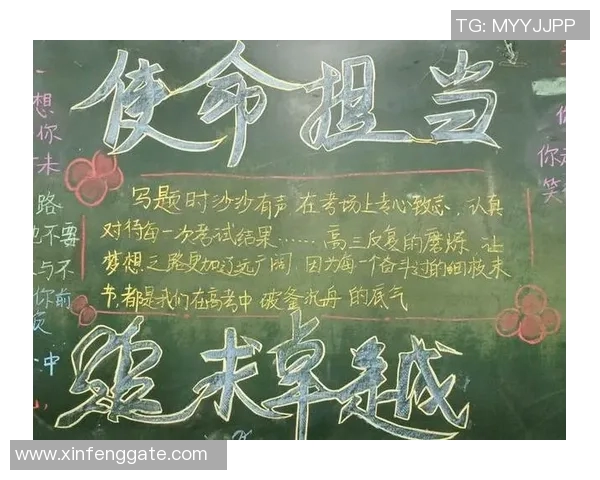 TG: MYYJJPP
使命担当
一
想
你
未
路
也不要
与不
你前
中
写题时沙沙有声 在考场上专心致志、认真
对待每一次考试结果……高三反复的磨炼 让
梦想之路更加辽远广阔,因为每一个奋斗过的细枝末
节,都是我们在高考中 破釜沉舟 的底气
你
笑
追求卓越
www.xinfenggate.com